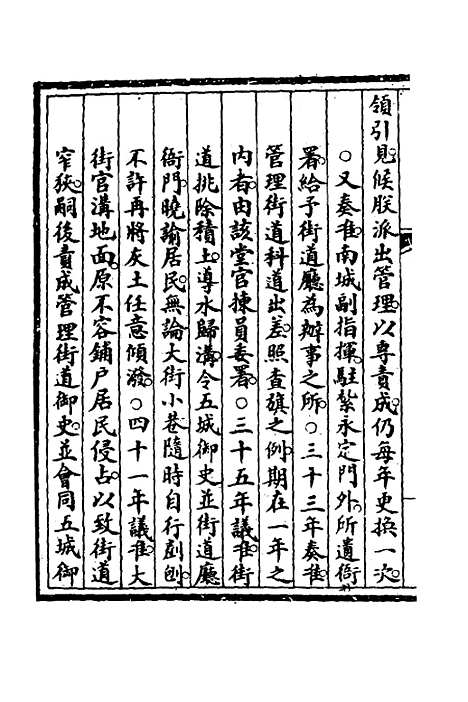 領引見候朕派出管理以專責成仍每年更換一次
○又奏准南城副指揮駐紮永定門外所遺衙
署給予街道廳為辦事之所○三十三年奏准
管理街道科道出差照查旗之例期在一年之
内者由該堂官揀員委署○三十五年議准街
道挑除積土導水歸溝令五城御史並街道廳
衙門曉諭居民無論大街小巷隨時自行剷刨
不許再將灰土任意傾潑○四十一年議准大
街官溝地面原不容鋪户居民侵占以致街道
窄狹嗣後責成管理街道御史並會同五城御